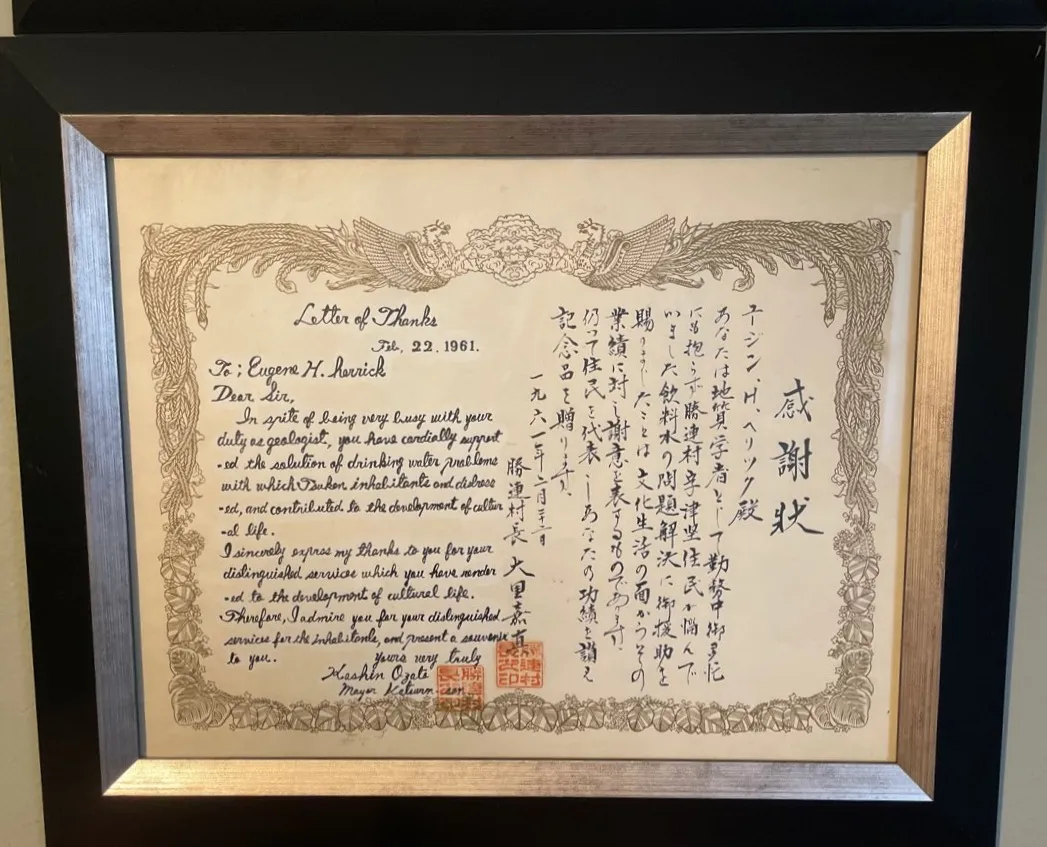 Letter of Thanks
Feb, 22. 1961.
To ; Eugene H. herrick
Dear Sir,
In spite of being very busy with your
duty as geologist, you have cardially support
-ed the solution of drinking water problems
with which Tsuken inhabitants and distress
-ed, and contributed to the development of cultur
-al life.
I sincerely express my thanks to you for your
distinguished services which you have render
-ed to the development of cultural life.
Therefore, I admire you for your distinguished
services for the inhabitants, and present a souvenir
to you.
Yours very truly
Kashin Ozato
Mayor Katsuren-son
感謝状
ユージン、H、ヘリック殿
あなたは地質学者として勤務中御多忙
にも拘らず勝連村字津堅住民が悩んで
いました飲料水の問題解決に御援助を
賜りましたことは文化生活の面からその
業績に対し謝意を表するものであります。
仍って住民を代表しあなたの功績を讃え
記念品を贈ります。
一九六一年二月二十二日
勝連村長 大里嘉真